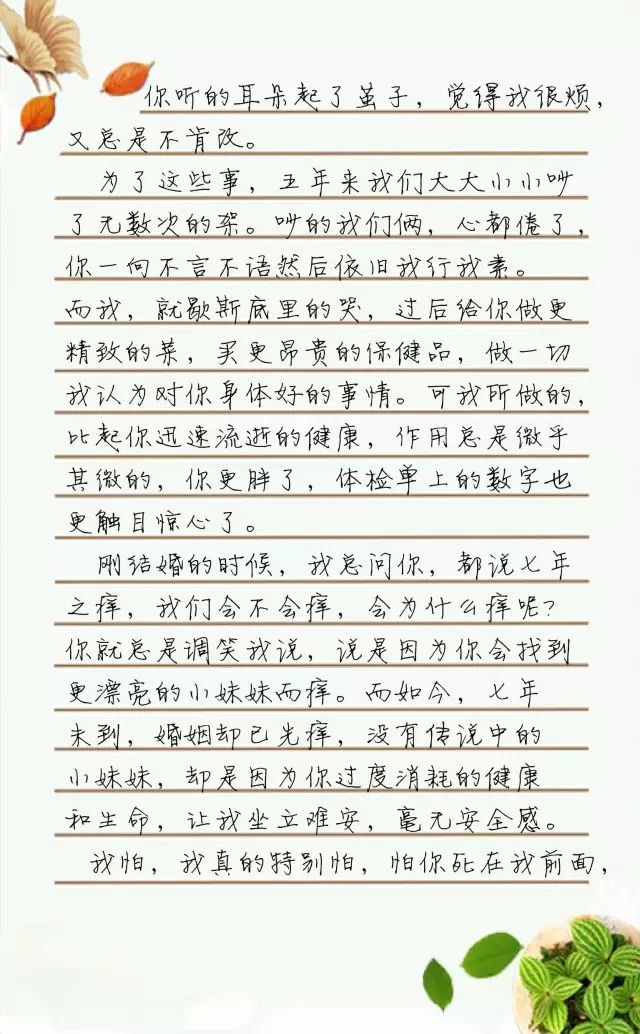 你听的耳朵起了茧子，觉得我很烦，
又总是不肯改。
为了这些事，五年来我们大大小小吵
了无数次的架。吵的我们俩，心都倦了，
你一向不言不语然后依旧我行我素。
而我，就歇斯底里的哭，过后给你做更
精致的菜，买更昂贵的保健品，做一切
我认为对你身体好的事情。可我所做的，
比起你迅速流逝的健康，作用总是微乎
其微的，你更胖了，体检单上的数字也
更触目惊心了。
刚结婚的时候，我总问你，都说七年
之痒，我们会不会痒，会为什么痒呢？
你就总是调笑我说，说是因为你会找到
更漂亮的小妹妹而痒。而如今，七年
未到，婚姻却已先痒，没有传说中的
小妹妹，却是因为你过度消耗的健康
和生命，让我坐立难安，毫无安全感。
我怕，我真的特别怕，怕你死在我前面，